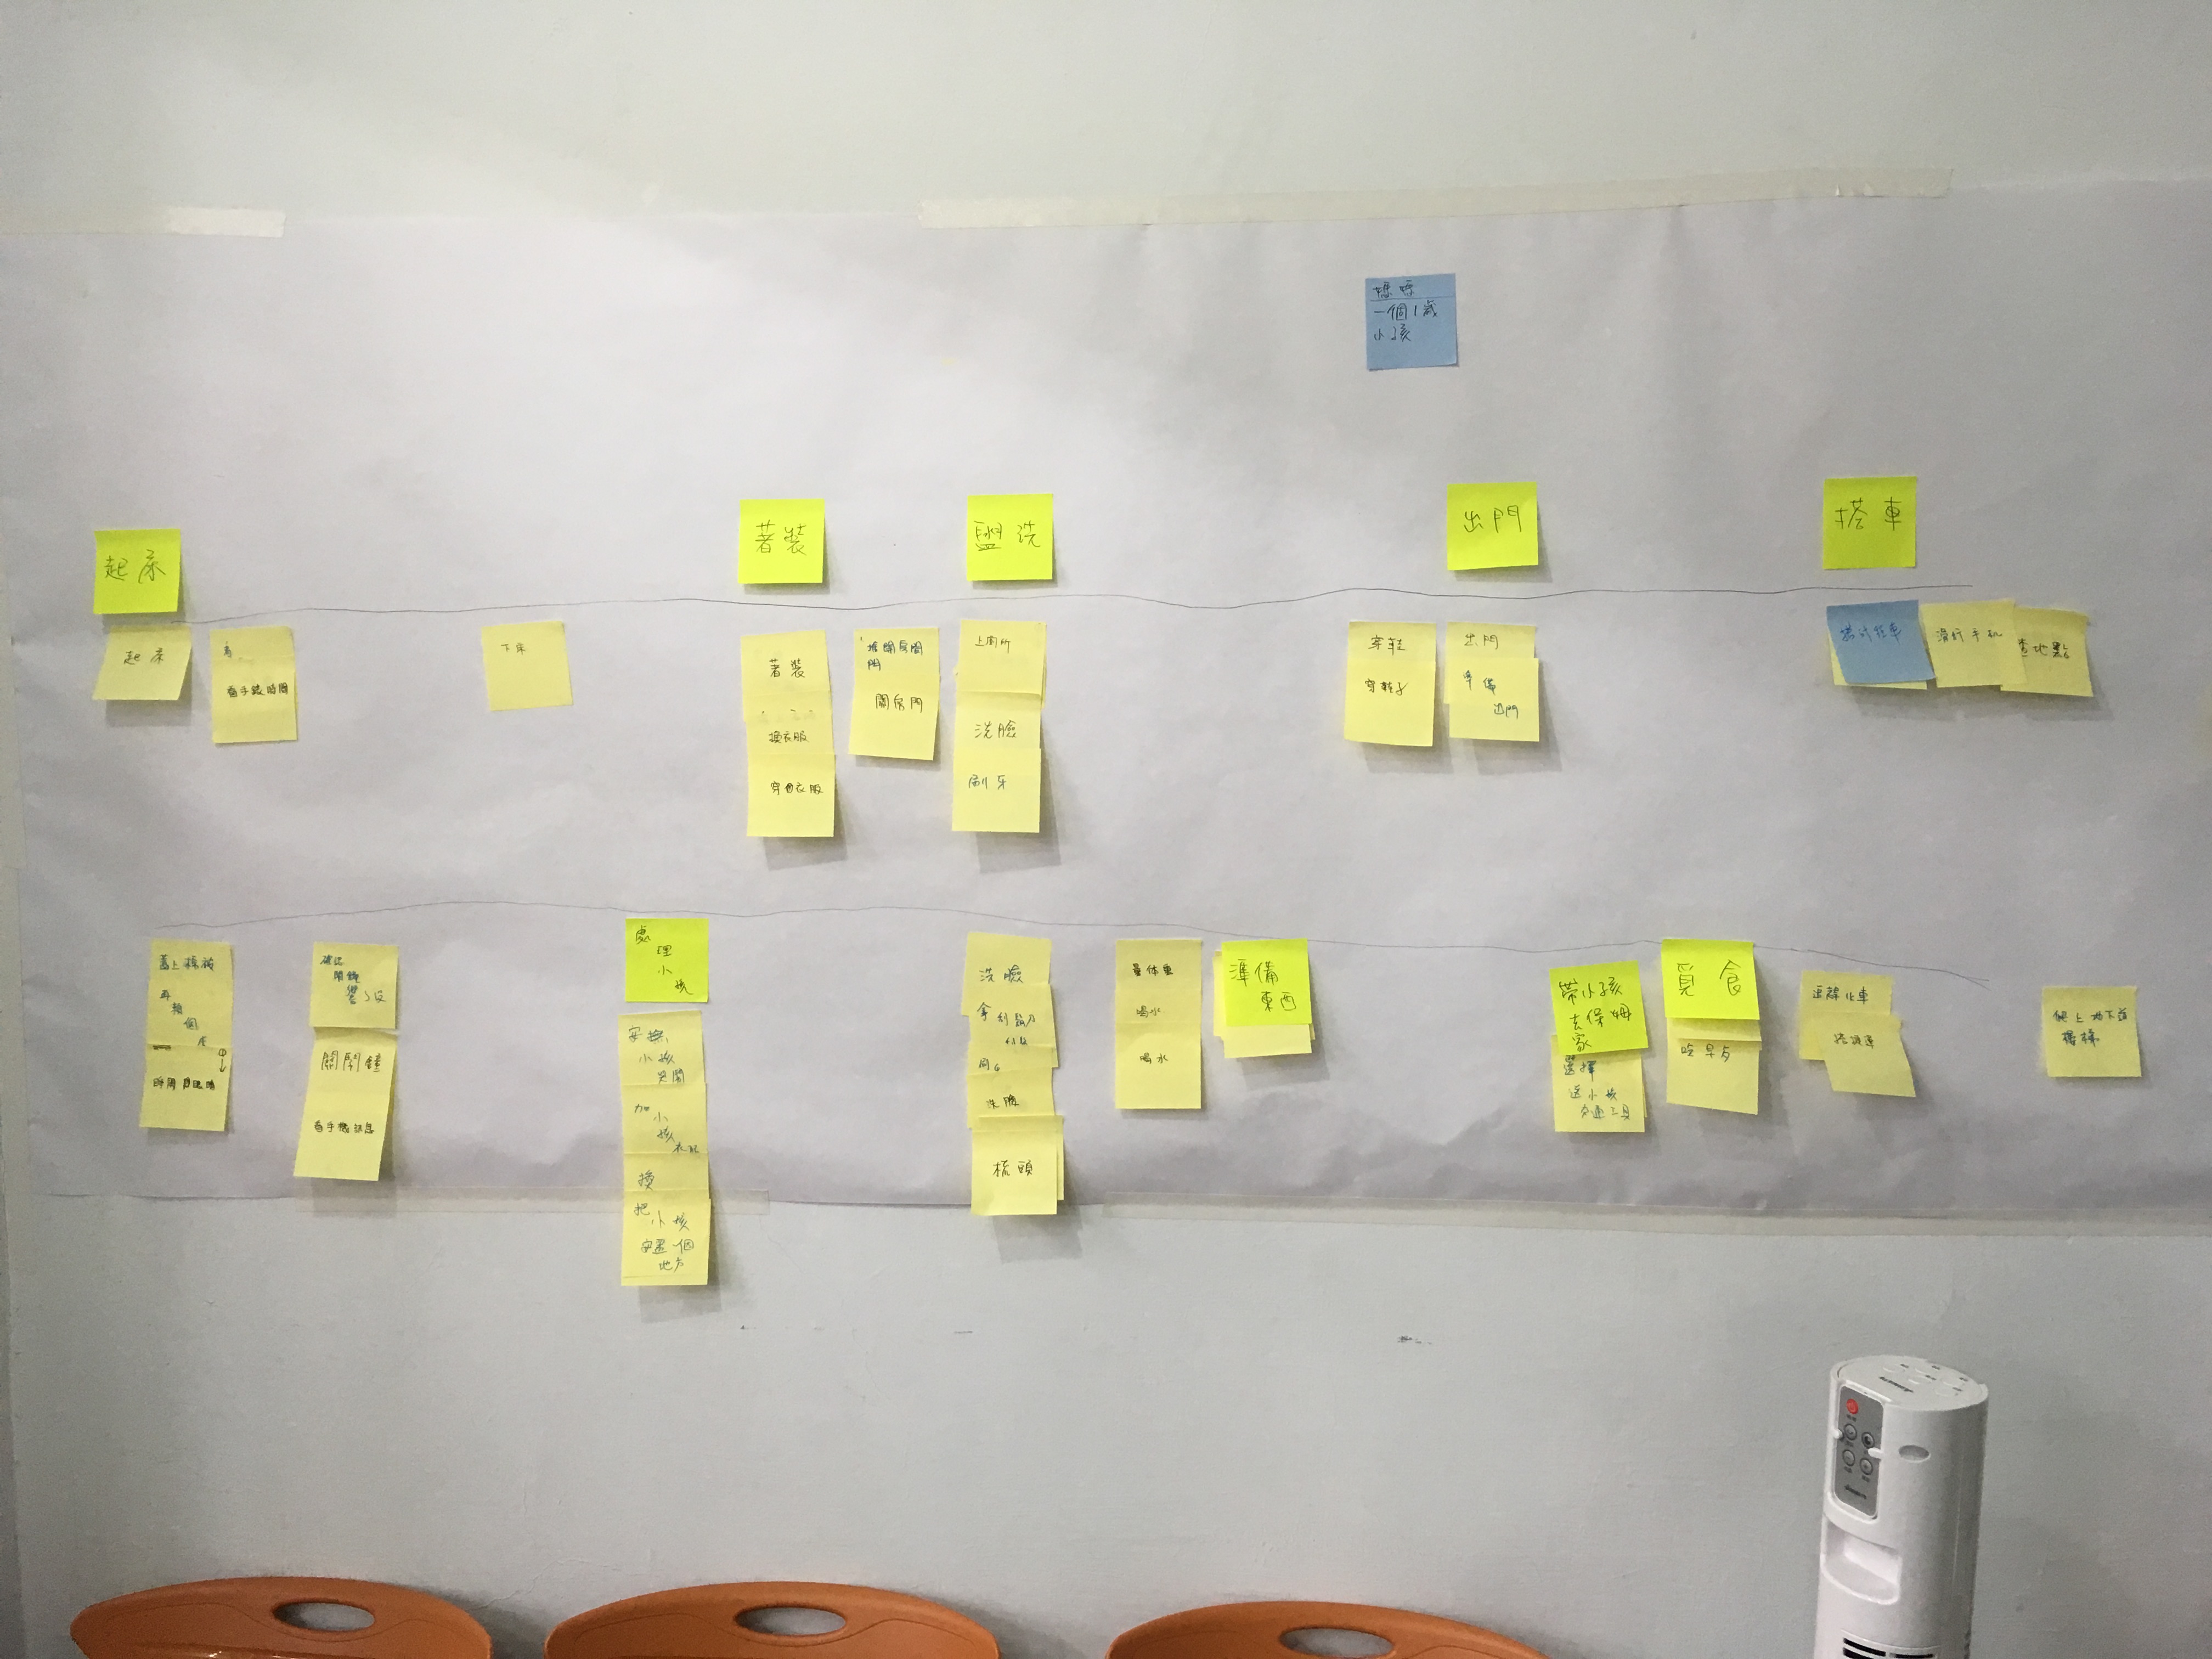 媽媽
一個1歲
小孩
起床
著裝
盥洗
出門
搭車
起床
看手錶時間
下床
著裝
換衣服
穿衣服
門
關房門
上廁所
洗臉
刷牙
穿鞋
穿鞋子
出門
準備
出門
滑行手机
查地點
蓋上棉被
再
賴
個
床
確認
鬧鐘
響了沒
關鬧鐘
看手機訊息
處
理
小
孩
安撫
小孩
哭鬧
加
小
孩
衣服
換
把
小孩
安置一個
地方
洗臉
拿刮鬍刀
洗臉
梳頭
量体重
喝水
喝水
準備
東西
帶小孩
去保姆
家
選擇
送小孩
交通工具
覓食
吃早点
爬上地下道
樓梯